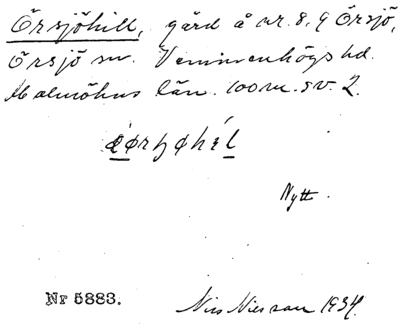 Örsjöhill, gård å nr. 8, 9 Örsjö,
Örsjö sn. Vemmenhögs hd.
Malmöhus län. 100 m. sv. 2.
Nytt.
Nr 5883.
Nils Nilsson 1934.